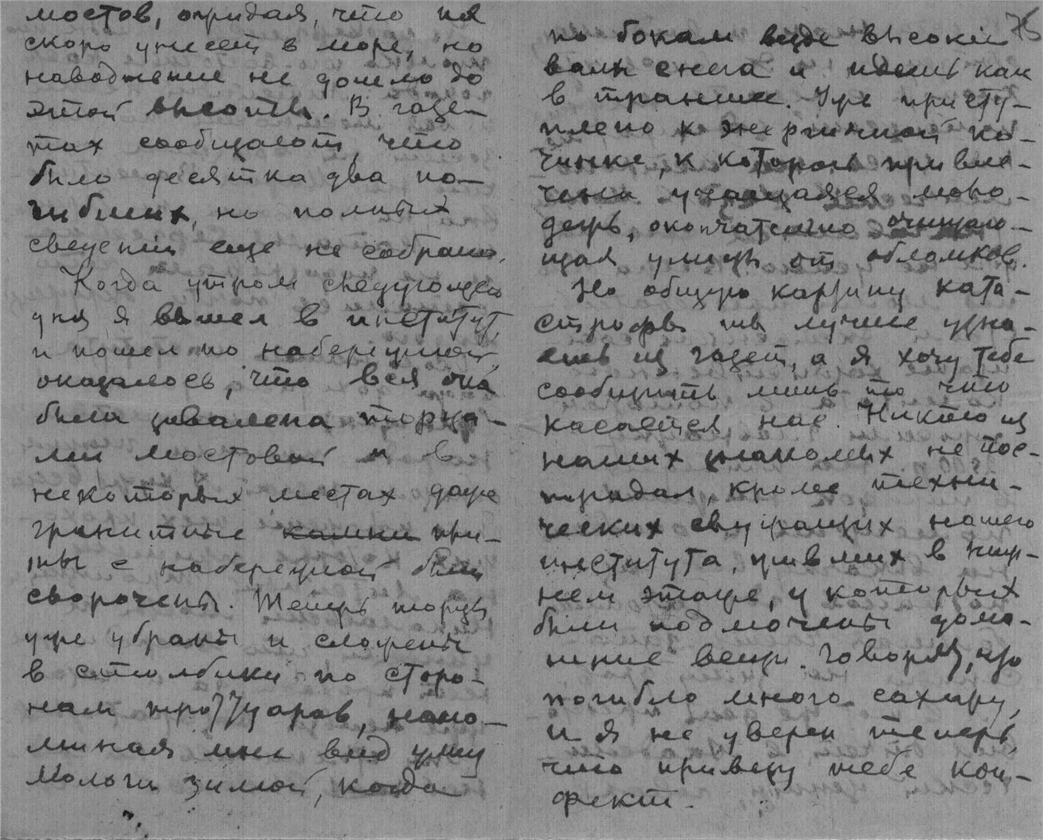 мостов, ожидая, что их
скоро унесет в море, но
наводнение не дошло до
этой высоты. В газе-
тах сообщают, что
было десятка два по-
гибших, но полных
сведений еще не собрано.
Когда утром следующего
дня я вышел в институт
и пошел по набережной,
оказалось, что вся она
была завалена торца-
ми мостовой и в
некоторых местах даже
гранитные камни
с набережной были
сворочены. Теперь торцы
уже убраны и сложены
в столбики по сторо-
нам троттуаров, напо-
миная мне вид улиц
Мологи зимой, когда
75
по бокам везде высокие
валы снега и идешь как
в траншее. Уже присту-
плено к энергичной по-
чинке, к которой привле-
чена учащаяся моло-
дежь, окончательно очищаю-
щая улицы от обломков.
Но общую картину ката-
строфы ты лучше узна-
ешь из газет, а я хочу тебе
сообщить лишь то что
касается нас. Никто из
наших знакомых не пос-
традал, кроме техни-
ческих служащих нашего
института, живших в ниж-
нем этаже, у которых
были подмочены дома-
шние вещи. Говорят, что
погибло много сахару,
и я не уверен теперь,
что привезу тебе кон-
фект.